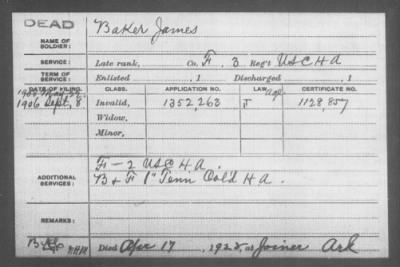 DEAD
Baker James
NAME OF SOLDIER:
SERVICE: Late rank, Co. F. 3 Reg't U S C H A
TERM OF SERVICE: Enlisted , 1 Discharged , 1
DATE OF FILING. CLASS. APPLICATION NO. LAW CERTIFICATE NO.
1906 Sept, 8 Invalid, 1352,263 1128,857
Widow,
Minor,
F - 2 U S C H A.
ADDITIONAL SERVICES: B & F 1" Tenn Col'd H A.
REMARKS:
Died Apr 17 , 1925, at Joiner Ark